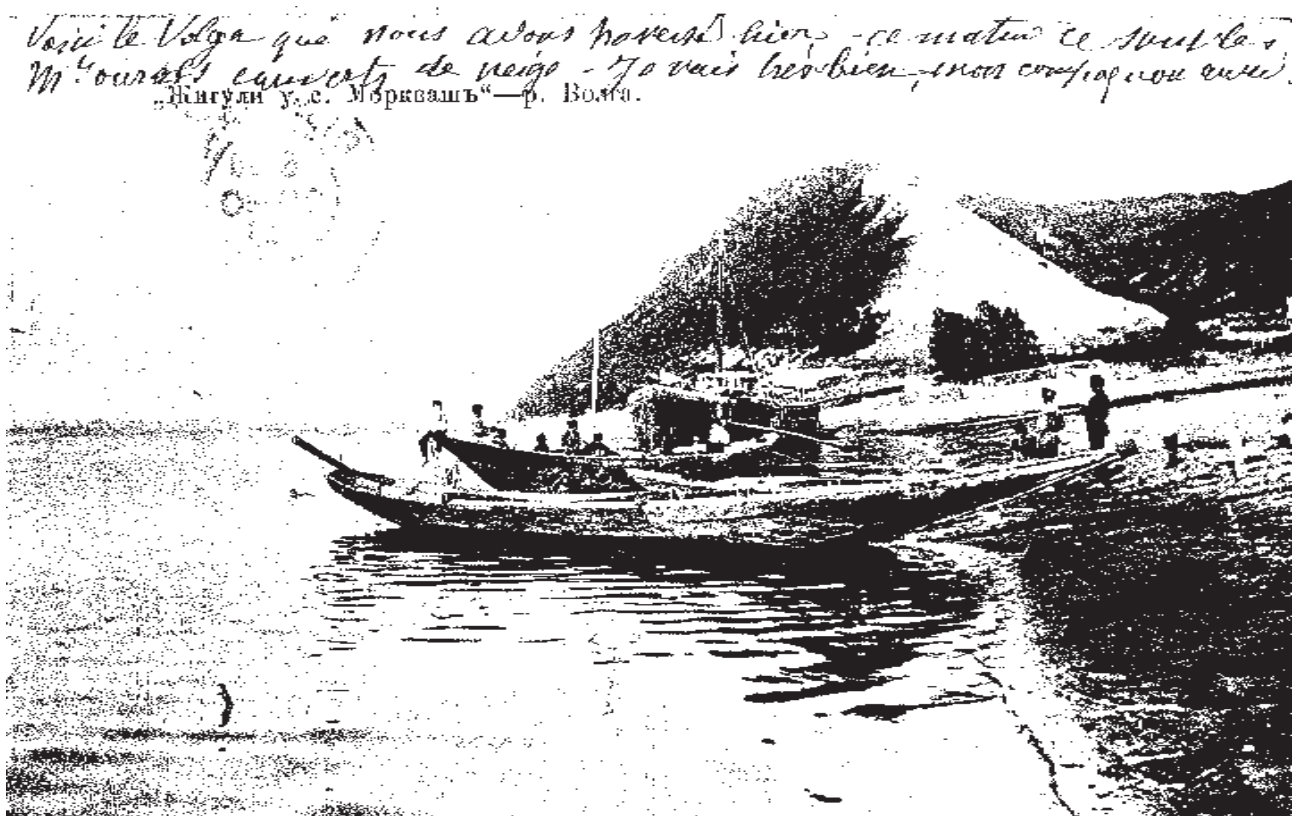 Voici le Volga que nous avons traversé hier, - ce matin ce sont les
Mts ourals couverts de neige - Je vais très bien, mon compagnon aussi.
„Жигули у с. Морквашъ“—р. Волга.